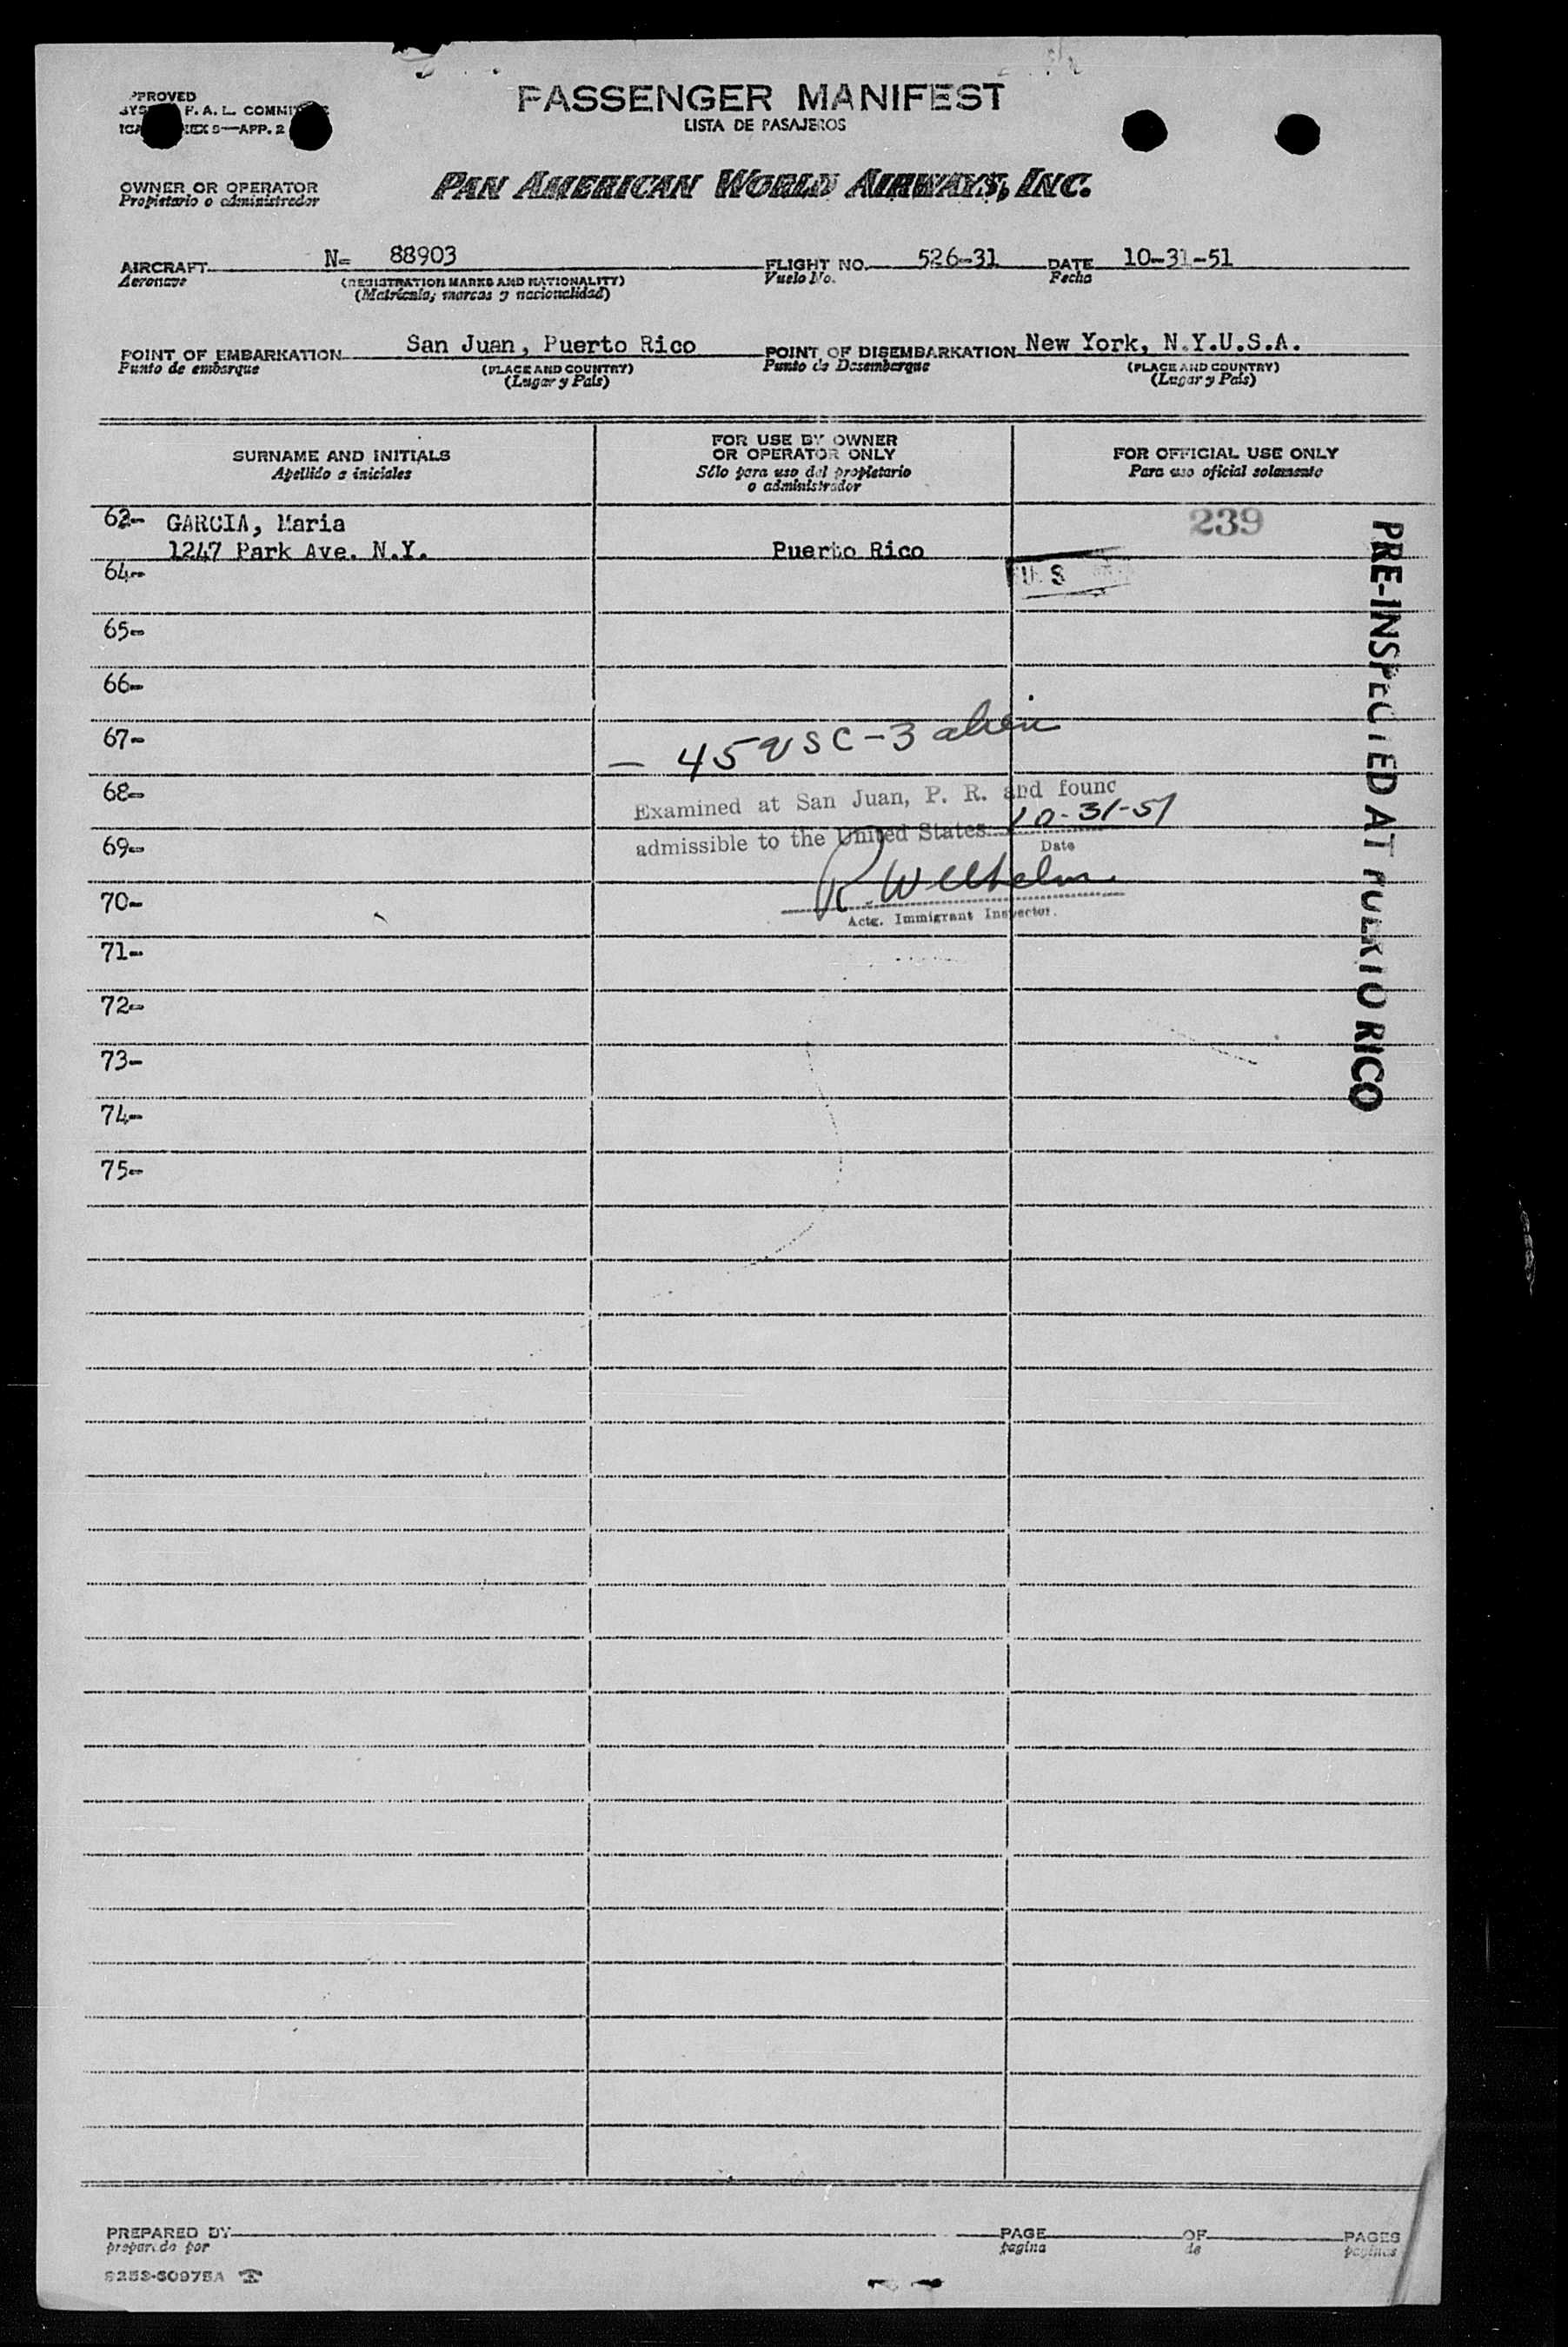 PASSENGER MANIFEST
LISTA DE PASAJEROS
PPROVED
P. A. L. COMMIT
APP. 2
OWNER OR OPERATOR
Propietario o administrador
PAN AMERICAN WORLD AIRWAYS, INC.
AIRCRAFT N- 88903 FLIGHT NO. 526-31 DATE 10-31-51
Aeronave (REGISTRATION MARKS AND NATIONALITY) Vuelo No. Fecha
(Matrícula; marcas y nacionalidad)
POINT OF EMBARKATION San Juan, Puerto Rico POINT OF DISEMBARKATION New York, N.Y.U.S.A.
Punto de embarque (PLACE AND COUNTRY) Punto de Desembarque (PLACE AND COUNTRY)
(Lugar y País) (Lugar y País)
SURNAME AND INITIALS
Apellido e iniciales
FOR USE BY OWNER
OR OPERATOR ONLY
Sólo para uso del propietario
o administrador
FOR OFFICIAL USE ONLY
Para uso oficial solamente
GARCIA, Maria 239
1247 Park Ave. N.Y. Puerto Rico
64- U. S
65-
66-
67- — 45 USC-3 alien
68- Examined at San Juan, P. R. and found
69- admissible to the United States. 10-31-51
Date
R. Wilhelm
70- Actg. Immigrant Inspector.
71-
72-
73-
74-
75-
PRE-INSPECTED AT PUERTO RICO
PREPARED BY PAGE OF PAGES
preparado por pagina de paginas